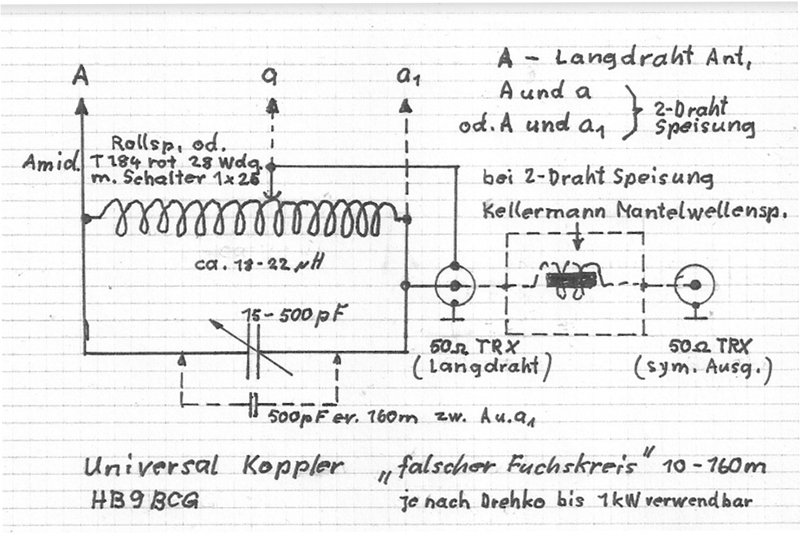 A
a
a₁
A - Langdraht Ant,
A und a
od. A und a₁
2-Draht
Speisung
Rollsp. od.
Amid. T 184 rot 28 Wdg.
m. Schalter 1x26
bei 2-Draht Speisung
Kellermann Mantelwellensp.
ca. 18-22 µH
15-500pF
50Ω TRX
(Langdraht)
50Ω TRX
(sym. Ausg.)
500pF ev. 160m zw. A u. a₁
Universal Koppler „falscher Fuchskreis" 10-160m
HB9BCG
je nach Drehko bis 1kW verwendbar